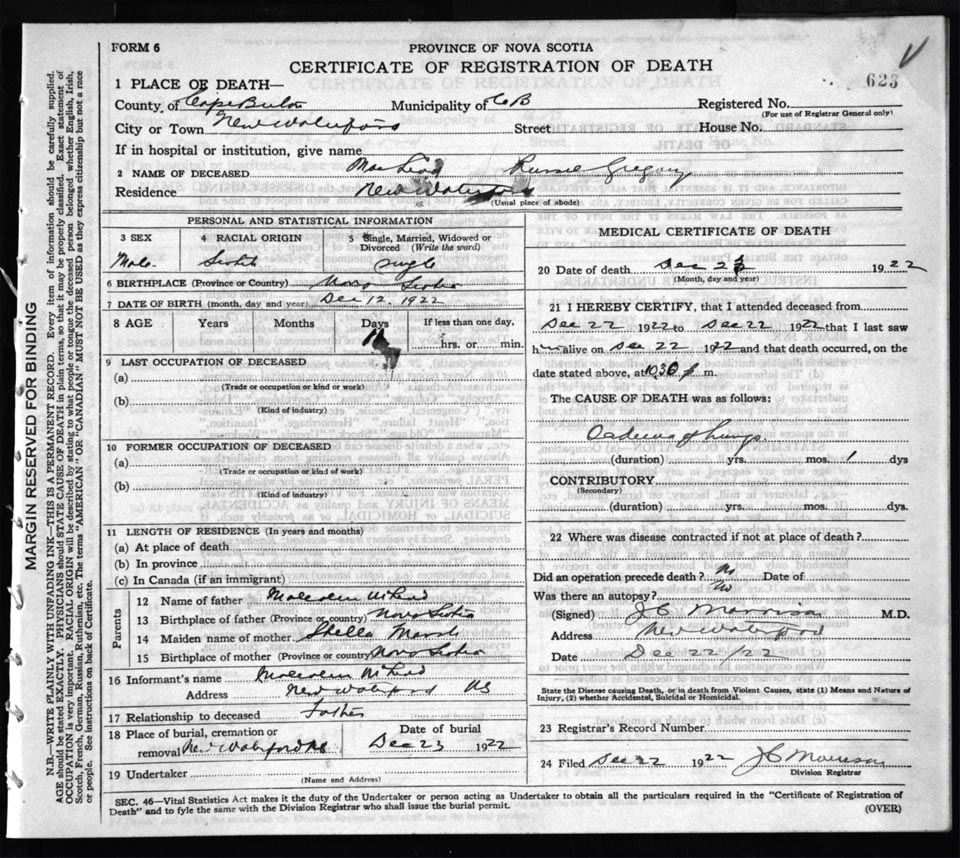 FORM 6
PROVINCE OF NOVA SCOTIA
CERTIFICATE OF REGISTRATION OF DEATH
623
1 PLACE OF DEATH—
County of Cape Breton Municipality of C B Registered No.
(For use of Registrar General only)
City or Town New Waterford Street House No.
If in hospital or institution, give name
2 NAME OF DECEASED MacLeod Russel Gregory
Residence New Waterford
(Usual place of abode)
PERSONAL AND STATISTICAL INFORMATION
3 SEX 4 RACIAL ORIGIN 5 Single, Married, Widowed or Divorced (Write the word)
Male Scotch Single
6 BIRTHPLACE (Province or Country) Nova Scotia
7 DATE OF BIRTH (month, day and year) Dec 12. 1922
8 AGE Years Months Days If less than one day,
hrs. or min.
9 LAST OCCUPATION OF DECEASED
(a)
(Trade or occupation or kind of work)
(b)
(Kind of industry)
10 FORMER OCCUPATION OF DECEASED
(a)
(Trade or occupation or kind of work)
(b)
(Kind of industry)
11 LENGTH OF RESIDENCE (In years and months)
(a) At place of death
(b) In province
(c) In Canada (if an immigrant)
Parents
12 Name of father Malcolm McLeod
13 Birthplace of father (Province or country) Nova Scotia
14 Maiden name of mother Stella Marsh
15 Birthplace of mother (Province or country) Nova Scotia
16 Informant's name Malcolm McLeod
Address New Waterford NS
17 Relationship to deceased Father
18 Place of burial, cremation or removal New Waterford NS Date of burial Dec 23 1922
19 Undertaker
(Name and Address)
MEDICAL CERTIFICATE OF DEATH
20 Date of death Dec 22 1922
(Month, day and year)
21 I HEREBY CERTIFY, that I attended deceased from
Dec 22 1922 to Dec 22 1922 that I last saw
him alive on Dec 22 1922 and that death occurred, on the
date stated above, at 10 30 p m.
The CAUSE OF DEATH was as follows:
Oedema of Lungs
(duration) yrs. mos. 1 dys
CONTRIBUTORY
(Secondary)
(duration) yrs. mos. dys.
22 Where was disease contracted if not at place of death?
Did an operation precede death? No Date of
Was there an autopsy? No
(Signed) J C Morrison M.D.
Address New Waterford
Date Dec 22/22
State the Disease causing Death, or in death from Violent Causes, state (1) Means and Nature of
Injury, (2) whether Accidental, Suicidal or Homicidal.
23 Registrar's Record Number
24 Filed Dec 22 1922 J C Morrison
Division Registrar
SEC. 46—Vital Statistics Act makes it the duty of the Undertaker or person acting as Undertaker to obtain all the particulars required in the "Certificate of Registration of
Death" and to fyle the same with the Division Registrar who shall issue the burial permit.
(OVER)
MARGIN RESERVED FOR BINDING
N.B.—WRITE PLAINLY WITH UNFADING INK—THIS IS A PERMANENT RECORD. Every item of information should be carefully supplied.
AGE should be stated EXACTLY. PHYSICIANS should STATE CAUSE OF DEATH in plain terms, so that it may be properly classified. Exact statement of
OCCUPATION is very important. RACIAL ORIGIN will be described by stating to what people or tongue the deceased person belonged whether English, Irish,
Scotch, French, German, Russian, Ruthenian, etc. The terms "AMERICAN" OR "CANADIAN" MUST NOT BE USED as they express citizenship but not a race
or people. See instructions on back of Certificate.